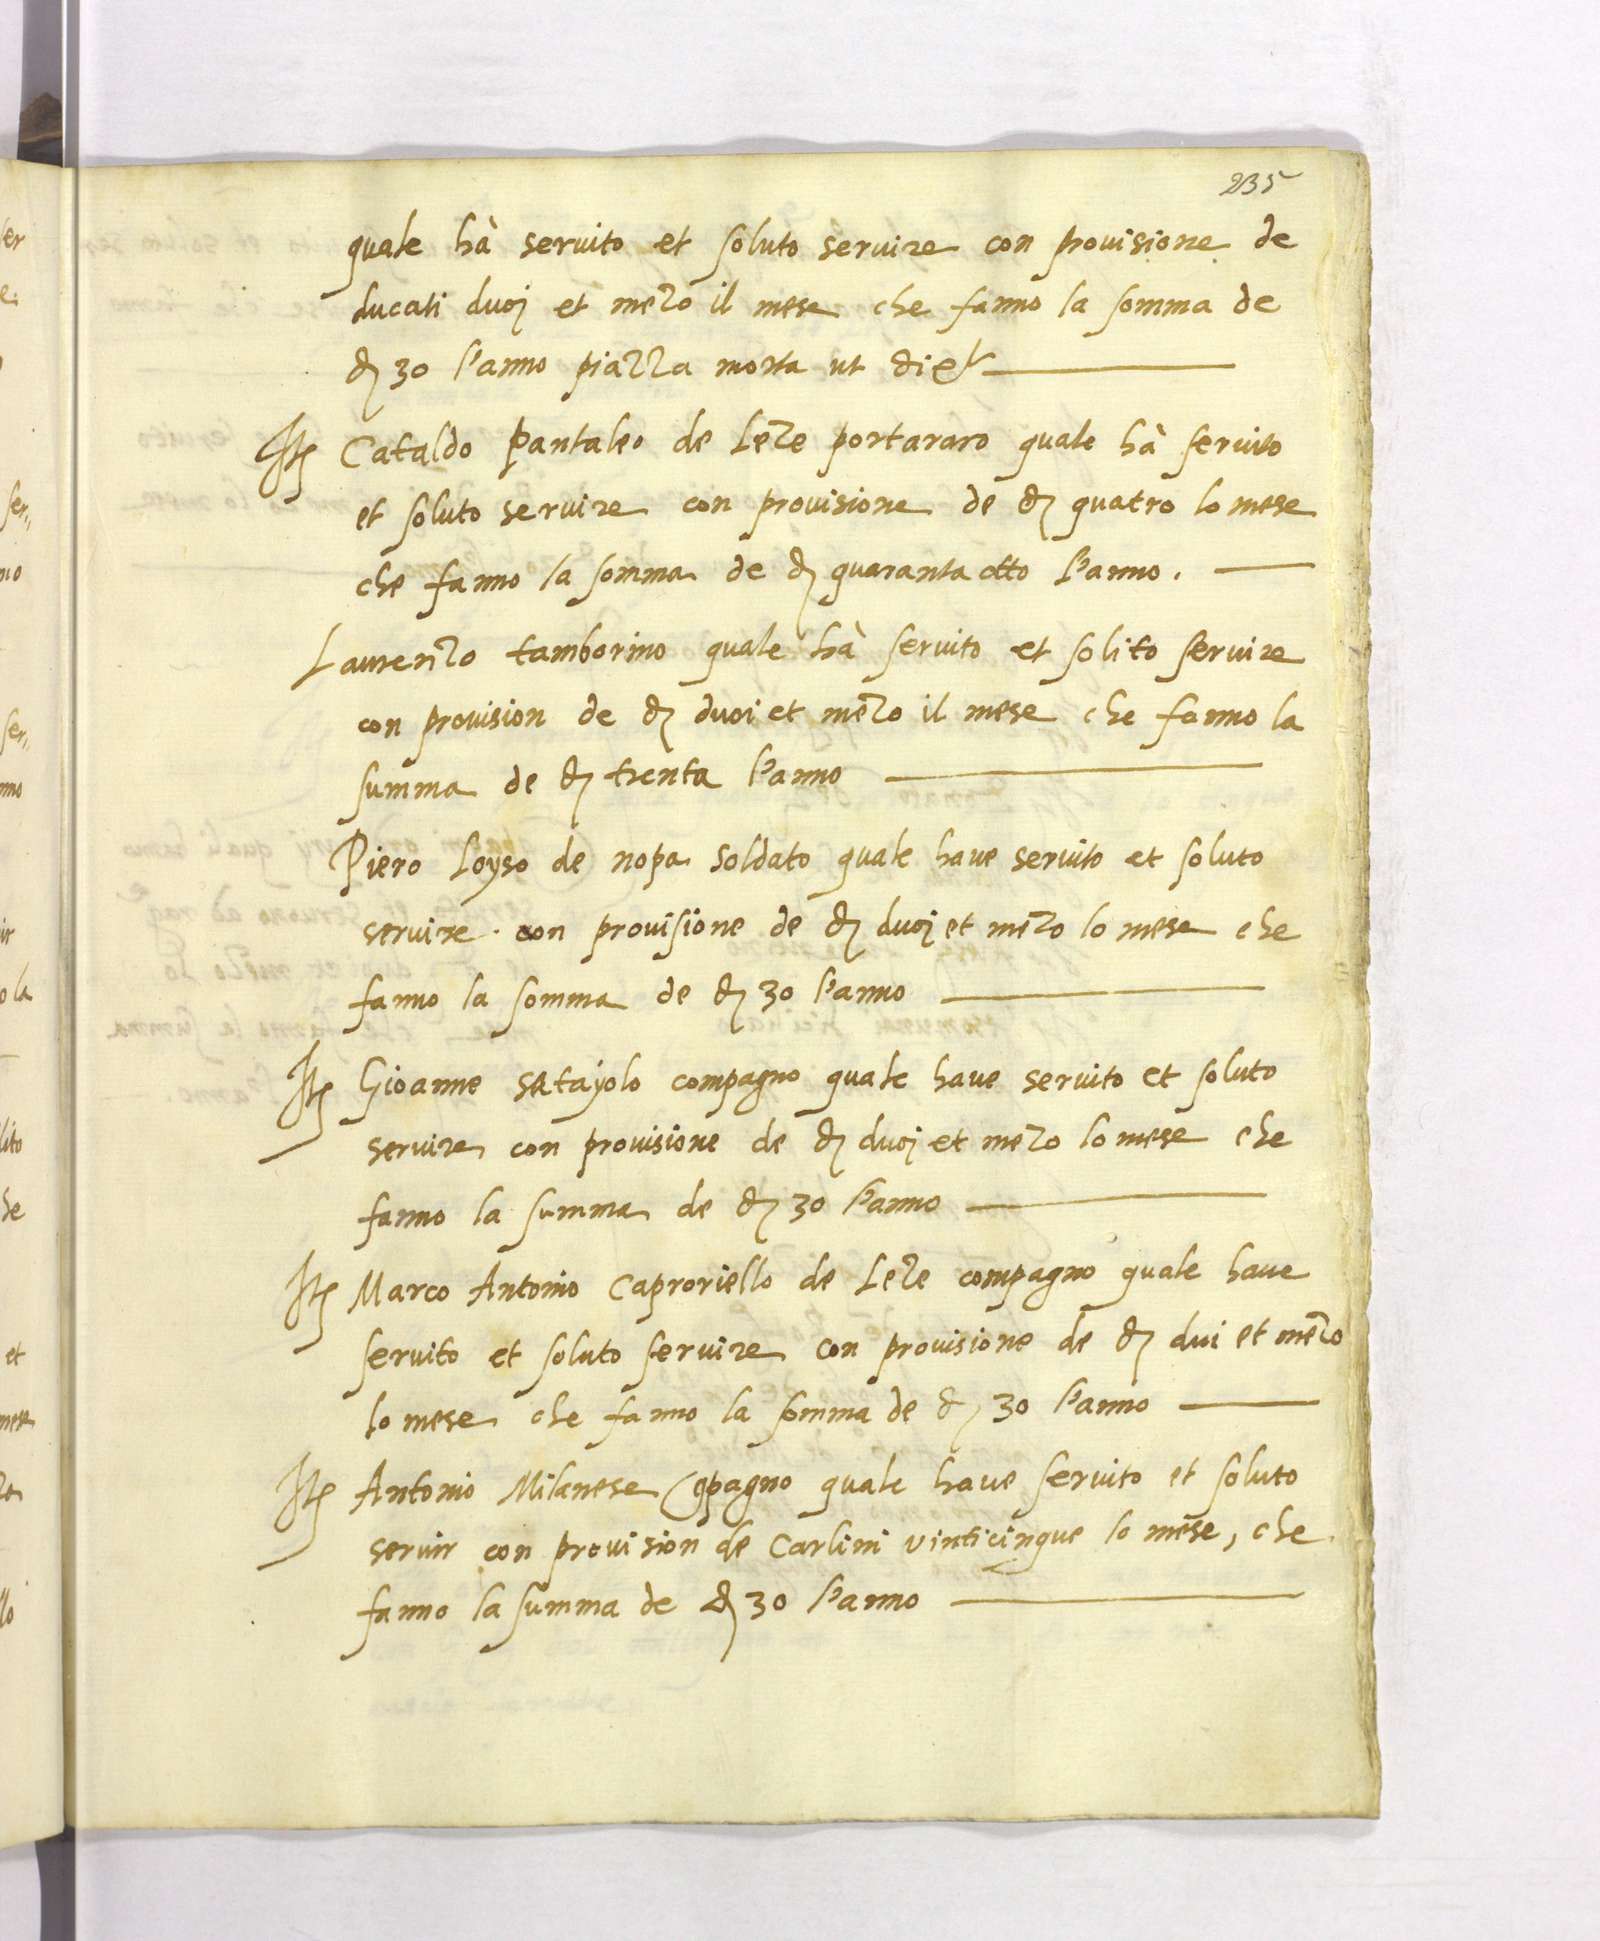 235
quale hà seruito et soluto seruire con prouisione de
ducati duoj et mezo il mese che fanno la somma de
d) 30 l'anno piazza morta ut
Itē Cataldo Pantaleo de Leze portararo quale hà seruito
et soluto seruire con prouisione de d) quatro lo mese
che fanno la somma de d) quaranta otto l'anno.
Laurenzo tamborino quale hà seruito et solito seruire
con prouision de d) duoi et mezo il mese che fanno la
summa de d) trenta l'anno
Piero Loyso de nopa soldato quale haue seruito et soluto
seruire con prouisione de d) duoj et mezo lo mese che
fanno la somma de d) 30 l'anno
Itē Gioanne satayolo compagno quale haue seruito et soluto
seruire con prouisione de d) duoj et mezo lo mese che
fanno la summa de d) 30 l'anno
Itē Marco Antonio Caproriello de Leze compagno quale haue
seruito et soluto seruire con prouisione de d) dui et mezo
lo mese che fanno la somma de d) 30 l'anno
Itē Antonio Milanese 9pagno quale haue seruito et soluto
seruir con prouision de Carlini vinticinque lo mese, che
fanno la summa de d) 30 l'anno